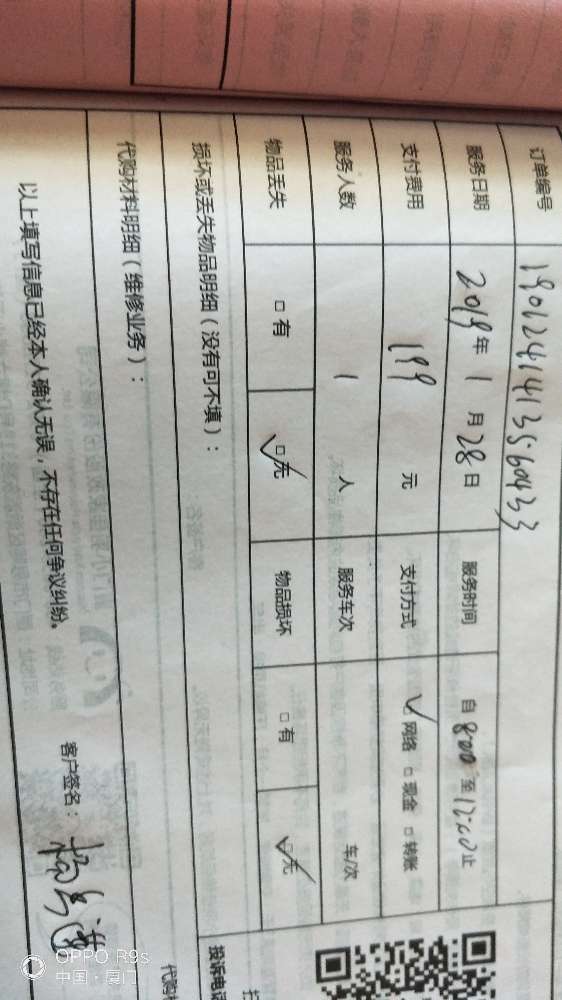 订单编号 19012414135560433
服务日期 2019年 1 月 28 日 服务时间 自 8:00 至 12:00 止
支付费用 199 元 支付方式 ✓网络 □现金 □转账
服务人数 1 人 服务车次 车/次
物品丢失 □有 ☑无 物品损坏 □有 ☑无
损坏或丢失物品明细（没有可不填）：
投诉电话
代购材料明细（维修业务）：
以上填写信息已经本人确认无误，不存在任何争议纠纷。 客户签名：
OPPO R9s
中国·厦门